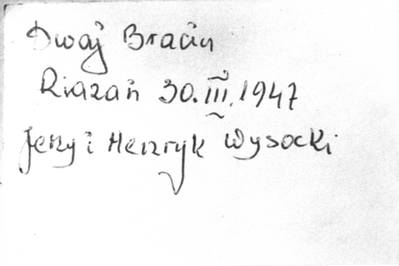 Dwaj Bracia
Riazań 30.III.1947
Jerzy i Henryk Wysocki